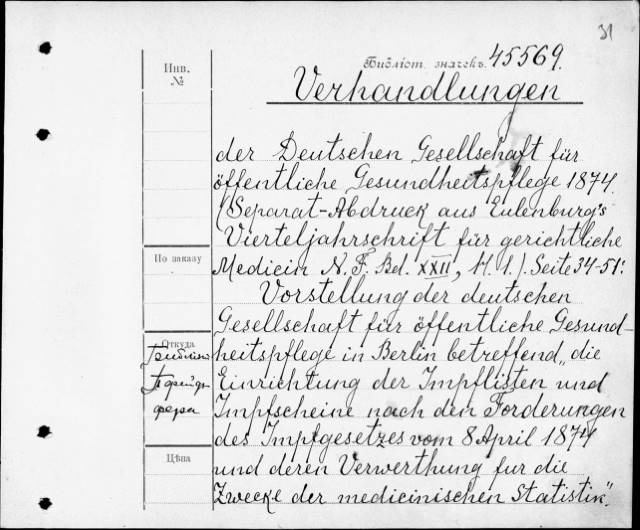 31
Инв.
№
Библіот. значекъ. 45569.
Verhandlungen
der Deutschen Gesellschaft für
öffentliche Gesundheitspflege 1874.
(Separat-Abdruck aus Eulenburg's
Vierteljahrschrift für gerichtliche
По заказу
Medicin N. F. Bd. XXII, H. 1.). Seite 34-51:
Vorstellung der deutschen
Gesellschaft für öffentliche Gesund-
Откуда
heitspflege in Berlin betreffend „die
Einrichtung der Impflisten und
Impfscheine nach den Forderungen
des Impfgesetzes vom 8 April 1874
Цѣна
und deren Verwerthung fur die
Zwecke der medicinischen Statistik".